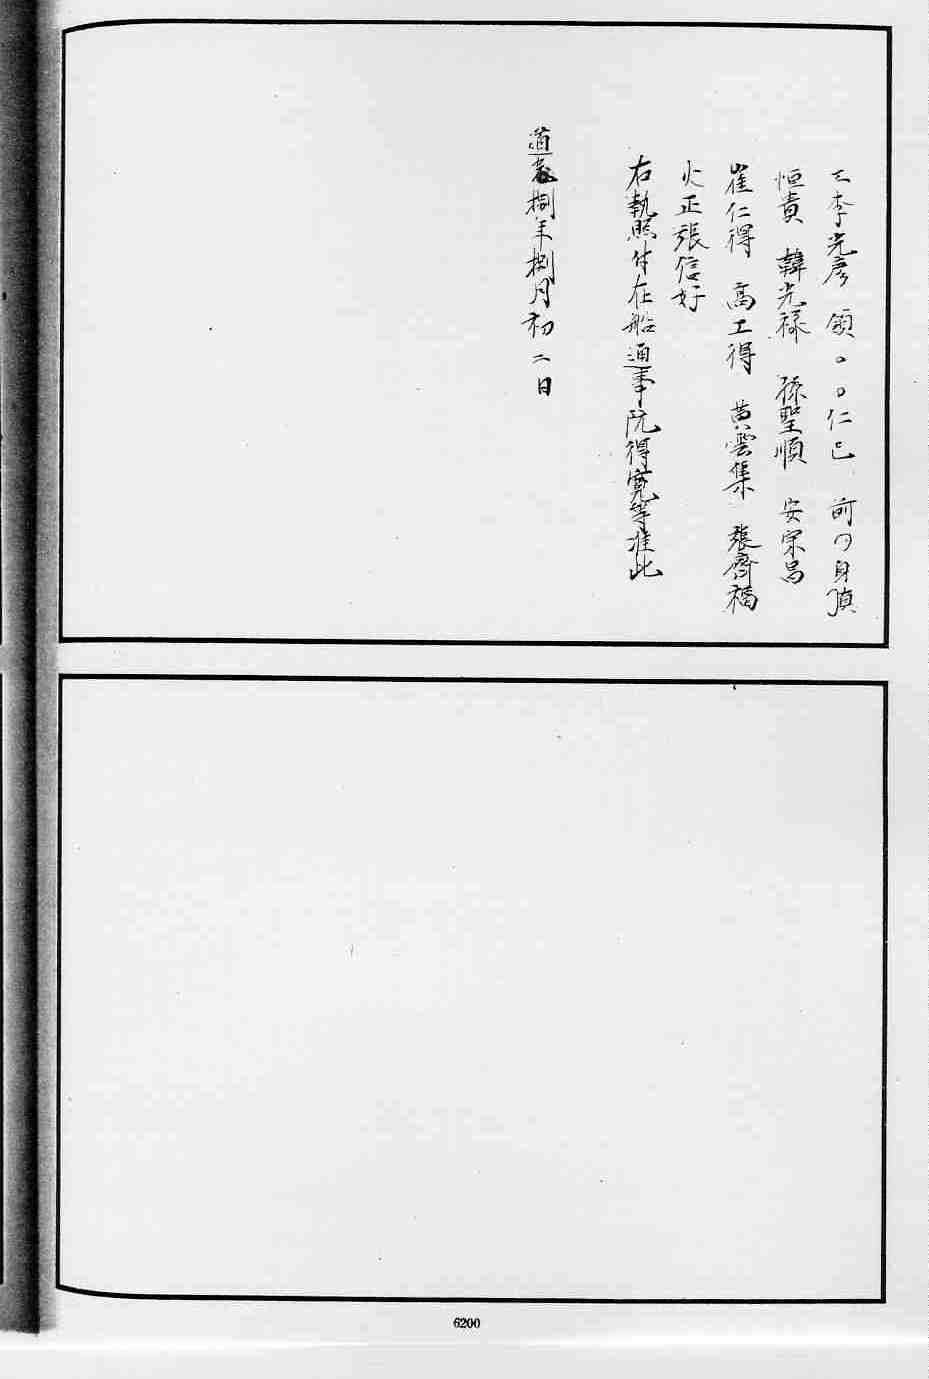 李光彦 領 仁已 前 身順
恒貴 韓光祿 孫聖順 安宗昌
崔仁得 高工得 黃雲集 張齊福
火正張信好
右執照付在船通事阮得寬等准此
道光捌年捌月初二日
6200